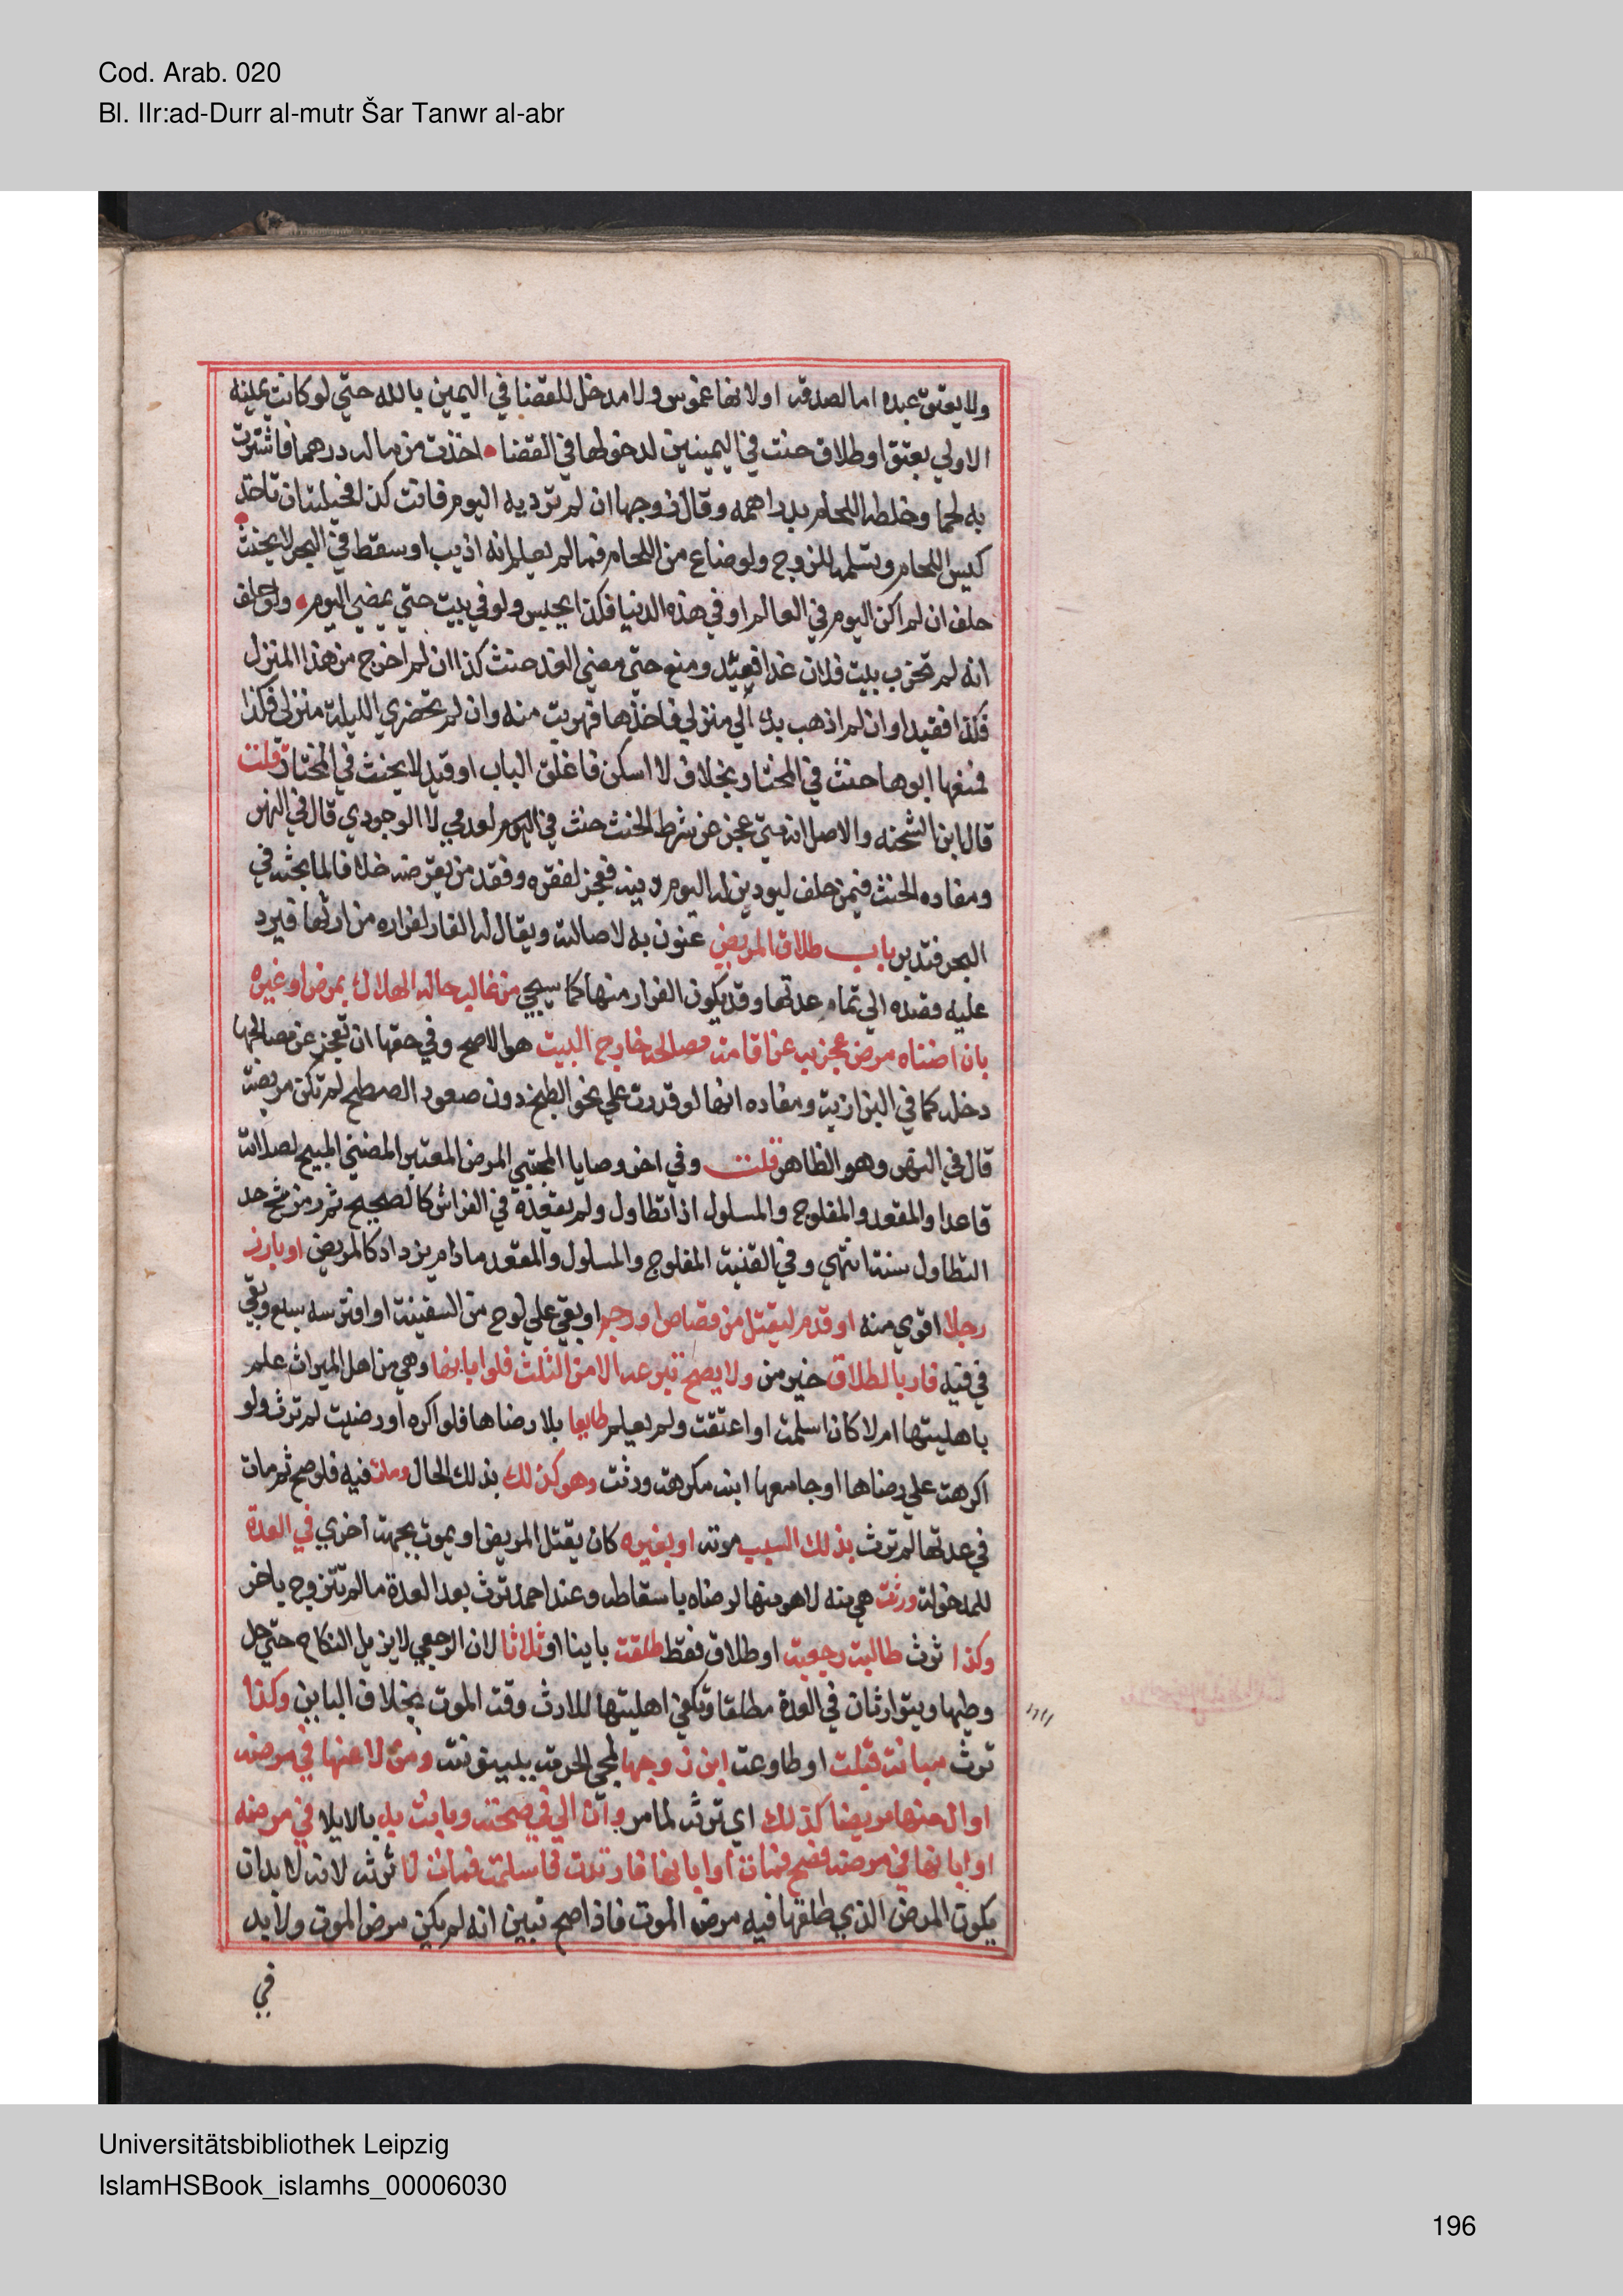 Cod. Arab. 020
Bl. IIr:ad-Durr al-mutr Šar Tanwr al-abr
ولا يعتق عبده اما لصدقه او لانها غموس ولا مدخل للقضا في اليمين بالله حتي لو كانت يمينه
الاولي بعتق او طلاق حنث في اليمينين لدخولها في القضا اخذت من ماله درهما فاشترت
به لحما وخلطه اللحام بدراهمه وقال زوجها ان لم ترديه اليوم فانت كذا فحيلته ان تاخذ
كيس اللحام وتسلمه للزوج ولو ضاع من اللحام فما لم يعلم انه اذيب او سقط في البحر لا يحنث
حلف ان لم اكن اليوم في العالم او في هذه الدنيا فكذا يحبس ولو في بيت حتي يمضي اليوم ولو حلف
انه لم تخرب بيت فلان غدا فقيد ومنع حتي مضي الغد حنث كذا ان لم اخرج من هذا المنزل
فكذا فقيد او ان لم اذهب بك الي منزلي فاخذها فهربت منه وان لم تحضري الليلة منزلي فكذا
فمنعها ابوها حنث في المختار بخلاف لا اسكن فاغلق الباب او قيد لا يحنث في المختار قلت
قال ابن الشحنه والاصل انه متي عجز عن شرط الحنث حنث في العدمي لا الوجودي قال في النهر
ومفاده الحنث فيمن حلف ليودين له اليوم دينه فعجز لفقره وفقد من يقرضه خلافا لما بحثه في
البحر فتدبر باب طلاق المريض عنون به لاصالته ويقال له الفار لفراره من ارثها فيرد
عليه قصده الي تمام عدتها وقد يكون الفرار منها كما سيجي من غالب حاله الهلاك بمرض او غيره
بان اضناه مرض عجز به عن اقامة مصالحه خارج البيت هو الاصح وفي حقها ان تعجز عن مصالحها
دخله كما في البزازية ومفاده انها لو قدرت علي نحو الطبخ دون صعود السطح لم تكن مريضة
قال في النهر وهو الظاهر قلت وفي اخر وصايا المجتبي المرض المعتبر المضني المبيح لصلاته
قاعدا والمقعد والمفلوج والمسلول اذا تطاول ولم يقعده في الفراش كالصحيح ثم رمز شح حد
التطاول سنة انتهي وفي القنية المفلوج والمسلول والمقعد مادام يزداد كالمريض او بارز
رجلا اقوي منه او قدم ليقتل من قصاص او رجم او بقي علي لوح من السفينة او افترسه سبع وبقي
في فيه فار بالطلاق خبر من ولا يصح تبرعه الا من الثلث فلو ابانها وهي من اهل الميراث علم
باهليتها ام لا كان اسلمت او اعتقت ولم يعلم طايعا بلا رضاها فلو اكره او رضيت لم ترث ولو
اكرهت علي رضاها او جامعها ابنه مكرهة ورثت وهو كذلك بذلك الحال ومات فيه فلو صح ثم مات
في عدتها لم ترث بذلك السبب موته او بغيره كان يقتل المريض او يموت بجهة اخري في العدة
للمدخولة ورثت هي منه لا هو منها لرضاه باسقاطه وعند احمد ترث بعد العدة ما لم تتزوج باخر
وكذا ترث طالبة رجعية او طلاق فقط طلقت باينا او ثلاثا لان الرجعي لا يزيل النكاح حتي حل
وطيها ويتوارثان في العدة مطلقا وتكفي اهليتها للارث وقت الموت بخلاف الباين وكذا
ترث مبانة قبلت او طاوعت ابن زوجها لمجي الحرمة ببينونته ومن لاعنها في مرضه
او الي منها مريضا كذلك اي ترثه لما مر وان الي في صحته وبانت به بالايلا في مرضه
او ابانها في مرضه فصح فمات او ابانها فارتدت فاسلمت فمات لا ترثه لانه لا بد ان
يكون المرض الذي طلقها فيه مرض الموت فاذا صح تبين انه لم يكن مرض الموت ولا بد
في
Universitätsbibliothek Leipzig
IslamHSBook_islamhs_00006030
196